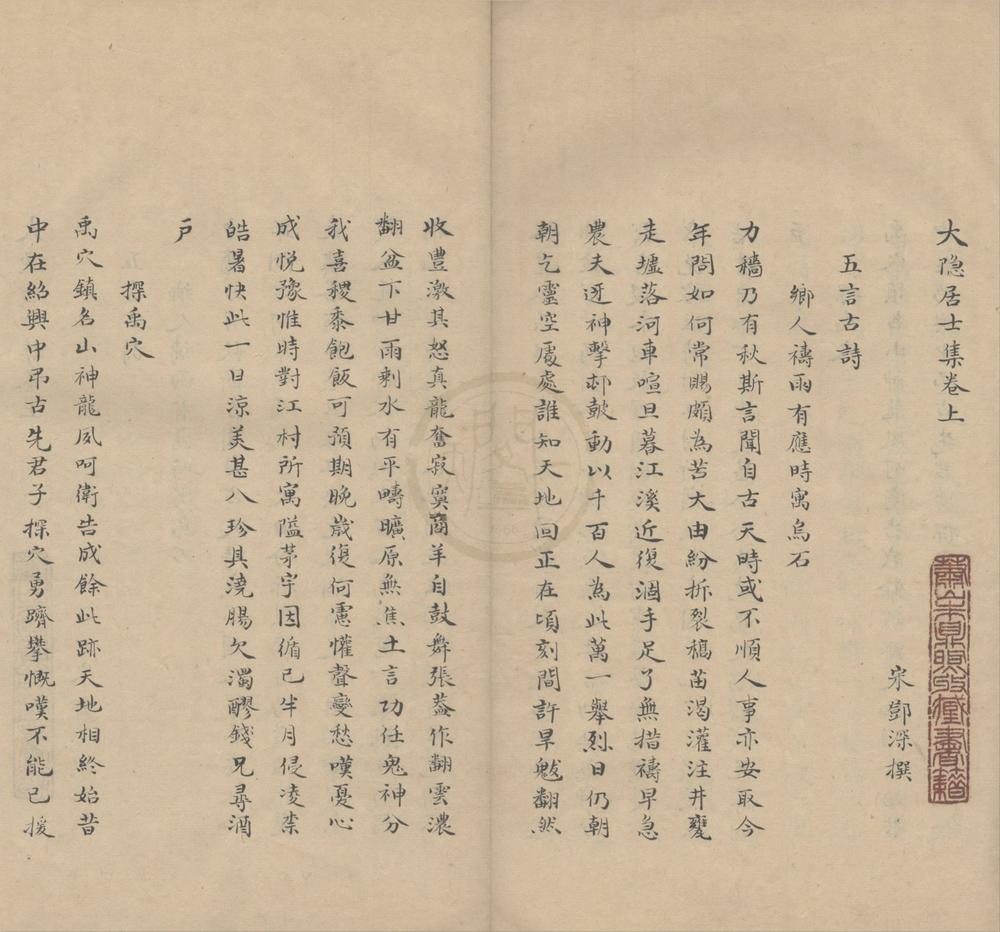 大隐居士集卷上
宋鄧深撰
五言古詩
鄉人禱雨有應時寓烏石
力穡乃有秋斯言聞自古天時或不順人事亦安取今
年問如何常暘頗為苦大由紛拆裂稿苗渴灌注井甕
走墟落河車喧旦暮江溪近復涸手足了無措禱旱急
農夫迓神擊邨皷動以千百人為此萬一舉烈日仍朝
朝乞靈空處處誰知天地回正在頃刻間許旱魃翻然
收豐激其怒真龍奮寂寞商羊自鼓舞張蓋作翻雲濃
翻盆下甘雨剩水有平疇曠原無焦土言功任鬼神分
我喜稷黍飽飯可預期晚歲復何慮懽聲變愁嘆憂心
成悦豫惟時對江村所寓隘茅宇因循已半月侵凌祟
皓暑快此一日涼美甚八珍具澆腸欠濁醪錢兄尋酒
戶
探禹穴
禹穴鎮名山神龍夙呵衛告成餘此跡天地相終始昔
中在紹興中吊古先君子探穴勇躋攀慨嘆不能已援